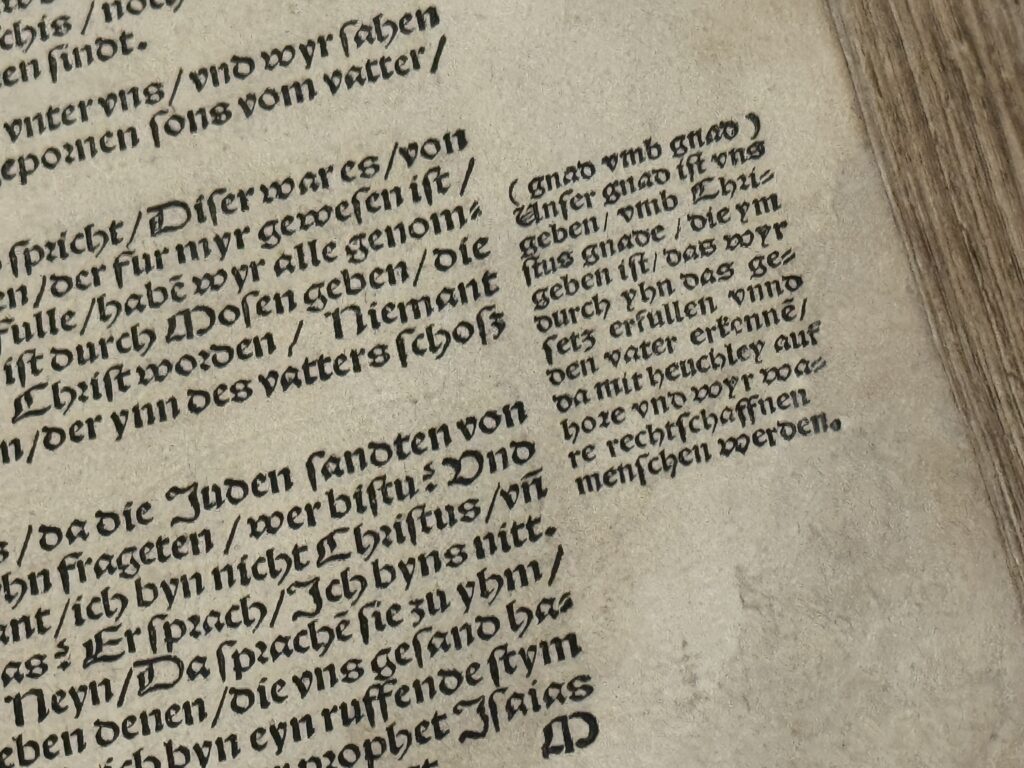 chis / noch
en sindt.
vnter vns / vnd wyr sahen
epornen sons vom vatter /
spricht / Diser war es / von
en / der fur myr gewesen ist /
fulle / habē wyr alle genom⸗
ist durch Mosen geben / die
Christ worden / Niemant
n / der ynn des vatters schosz
s / da die Juden sandten von
yhn frageten / wer bistu? Vnd
ant / ich byn nicht Christus / vn̄
as? Er sprach / Ich byns nitt.
Neyn / Da sprachē sie zu yhm /
eben denen / die vns gesand ha⸗
ich byn eyn ruffende stym
prophet Isaias
M
( gnad vmb gnad )
Unser gnad ist vns
geben / vmb Chri⸗
stus gnade / die ym
geben ist / das wyr
durch yhn das ge⸗
setz erfullen vnnd
den vater erkennē /
da mit heuchley auf
hore vnd wyr wa⸗
re rechtschaffnen
menschen werden.